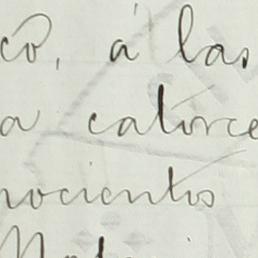 co, á las
a catorce
nocientos